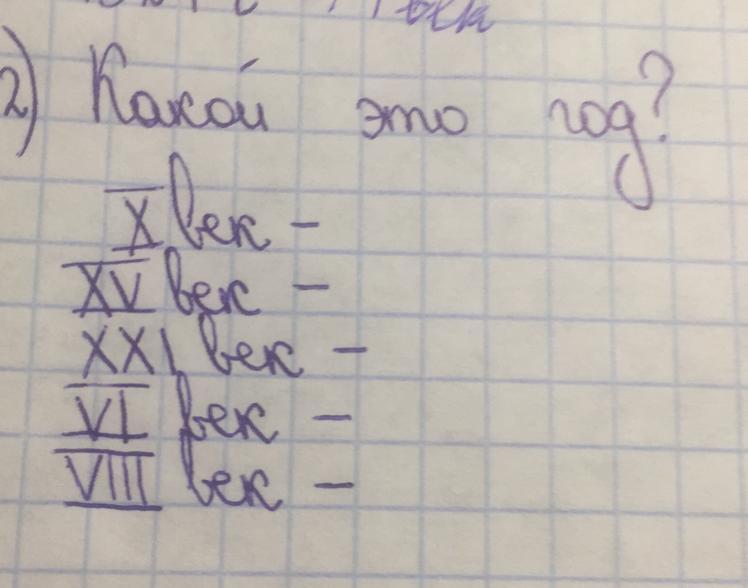 2) Какой это год?
X век -
XV век -
XXI век -
VI век -
VIII век -